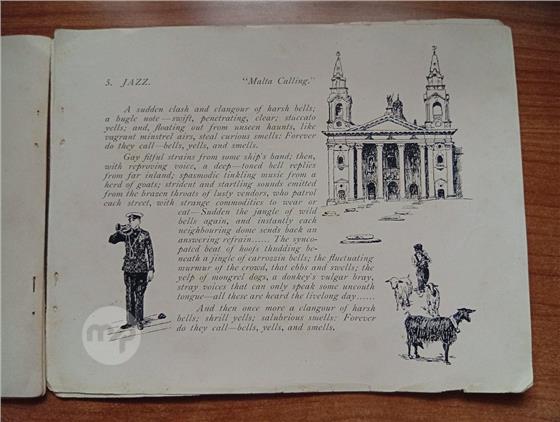 5. JAZZ. "Malta Calling."
A sudden clash and clangour of harsh bells;
a bugle note—swift, penetrating, clear; stuccato
yells; and, floating out from unseen haunts, like
vagrant minstrel airs, steal curious smells: Forever
do they call—bells, yells, and smells.
Gay fitful strains from some ship's band; then,
with reproving voice, a deep-toned bell replies
from far inland; spasmodic tinkling music from a
herd of goats; strident and startling sounds emitted
from the brazen throats of lusty vendors, who patrol
each street, with strange commodities to wear or
eat—Sudden the jangle of wild
bells again, and instantly each
neighbouring dome sends back an
answering refrain...... The synco-
pated beat of hoofs thudding be-
neath a jingle of carrozzin bells; the fluctuating
murmur of the crowd, that ebbs and swells; the
yelp of mongrel dogs, a donkey's vulgar bray,
stray voices that can only speak some uncouth
tongue—all these are heard the livelong day......
And then once more a clangour of harsh
bells; shrill yells; salubrious smells: Forever
do they call—bells, yells, and smells.
mp